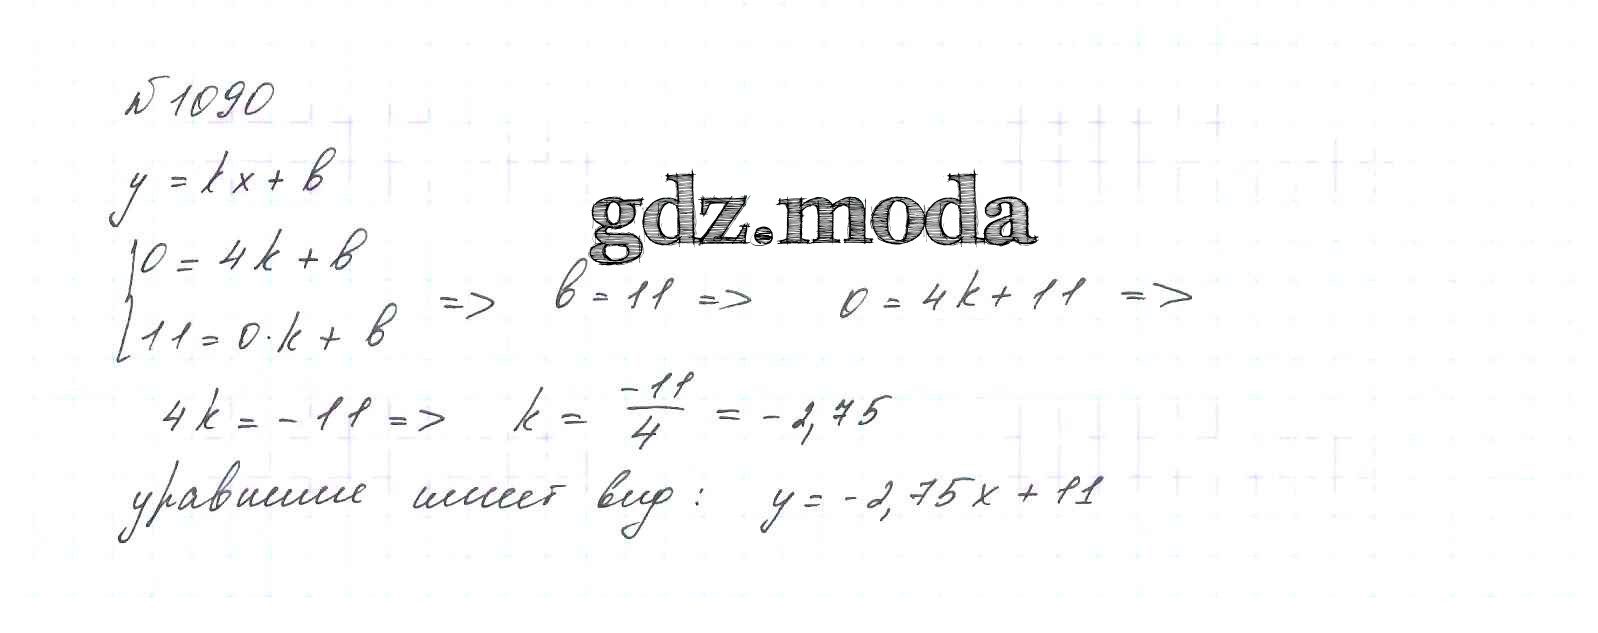 № 1090
y = kx + b
gdz.moda
{ 0 = 4k + b
{ 11 = 0·k + b => b = 11 => 0 = 4k + 11 =>
4k = -11 => k = -11/4 = -2,75
уравнение имеет вид: y = -2,75x + 11